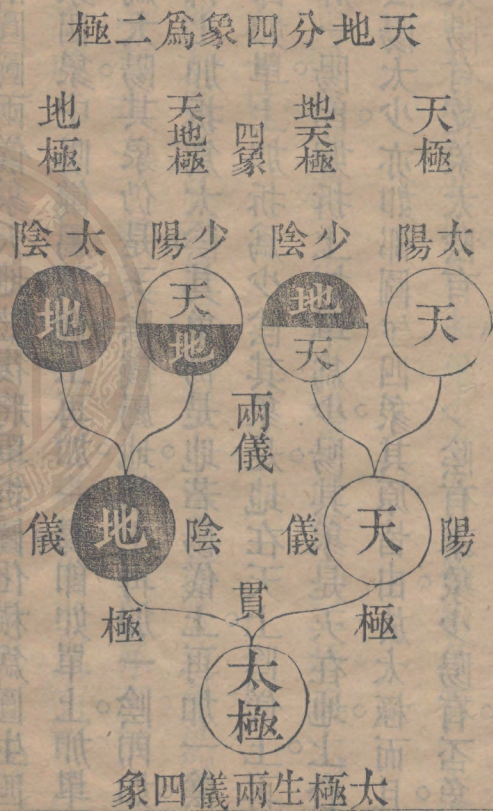 天地分四象爲二極
天極
地天極
四象
天地極
地極
太陽
少陰
少陽
太陰
天
地
天
天
地
地
兩儀
陽儀
天
陰儀
地
極
貫
極
太極
太極生兩儀四象